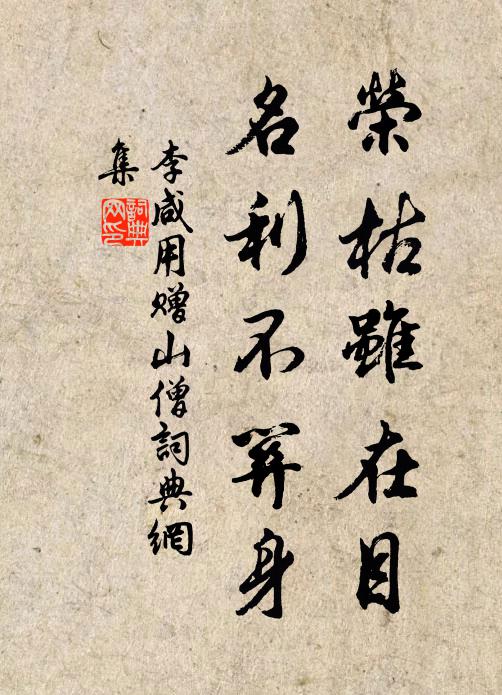 榮枯雖在目
名利不關身
李咸用贈山僧詞典網
集
詞典
网印